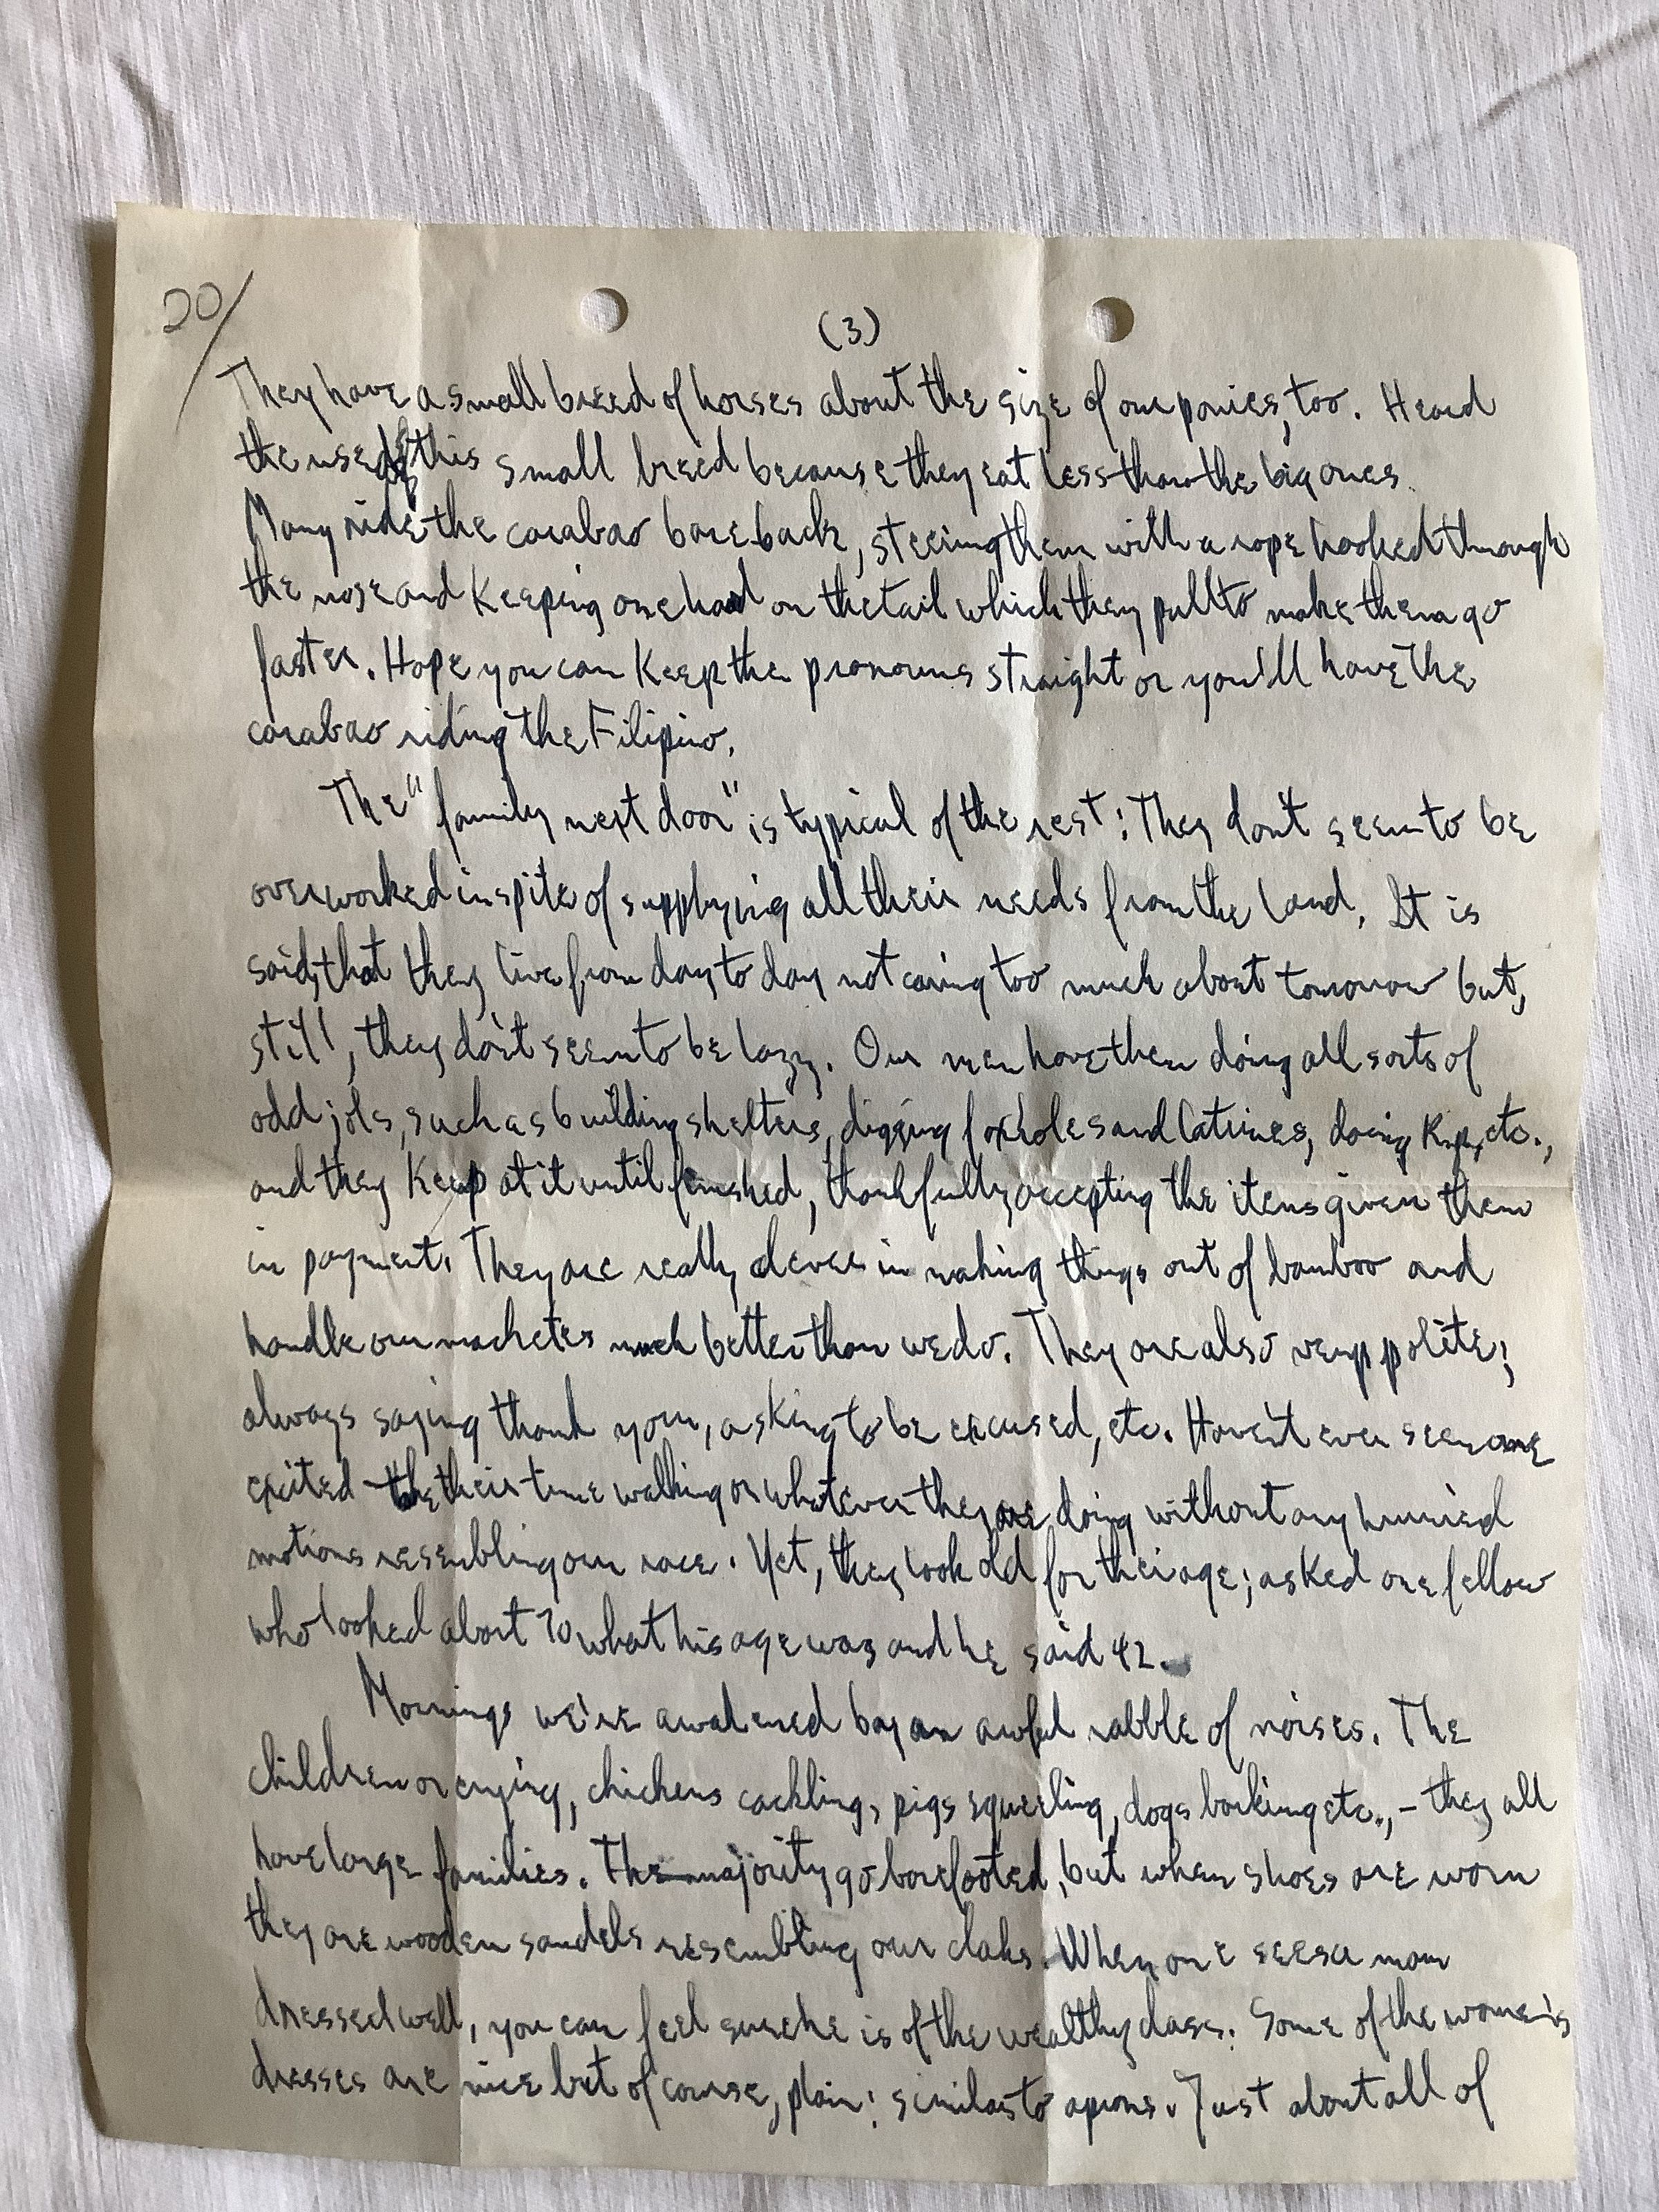 20/
(3)
They have a small breed of horses about the size of our ponies, too. Heard
the use of this small breed because they eat less than the big ones.
Many ride the carabao bareback, steering them with a rope hooked through
the nose and keeping one hand on the tail which they pull to make them go
faster. Hope you can keep the pronouns straight or you'll have the
carabao riding the Filipino.
The "family next door" is typical of the rest: They don't seem to be
overworked in spite of supplying all their needs from the land. It is
said, that they live from day to day not caring too much about tomorrow but,
still, they don't seem to be lazy. Our men have them doing all sorts of
odd jobs, such as building shelters, digging foxholes and latrines, doing K.p., etc.,
and they keep at it until finished, thankfully accepting the items given them
in payment. They are really clever in making things out of bamboo and
handle our machetes much better than we do. They are also very polite;
always saying thank you, asking to be excused, etc. Haven't ever seen one
excited - take their time walking or whatever they are doing without any hurried
motions resembling our race. Yet, they look old for their age; asked one fellow
who looked about 70 what his age was and he said 42.
Mornings we're awakened by an awful rabble of noises. The
children or crying, chickens cackling, pigs squeeling, dogs barking etc., - they all
have large families. The majority go barefooted, but when shoes are worn
they are wooden sandels resembling our claks. When one sees a man
dressed well, you can feel sure he is of the wealthy class. Some of the women's
dresses are nice but of course, plain; similar to aprons. Just about all of